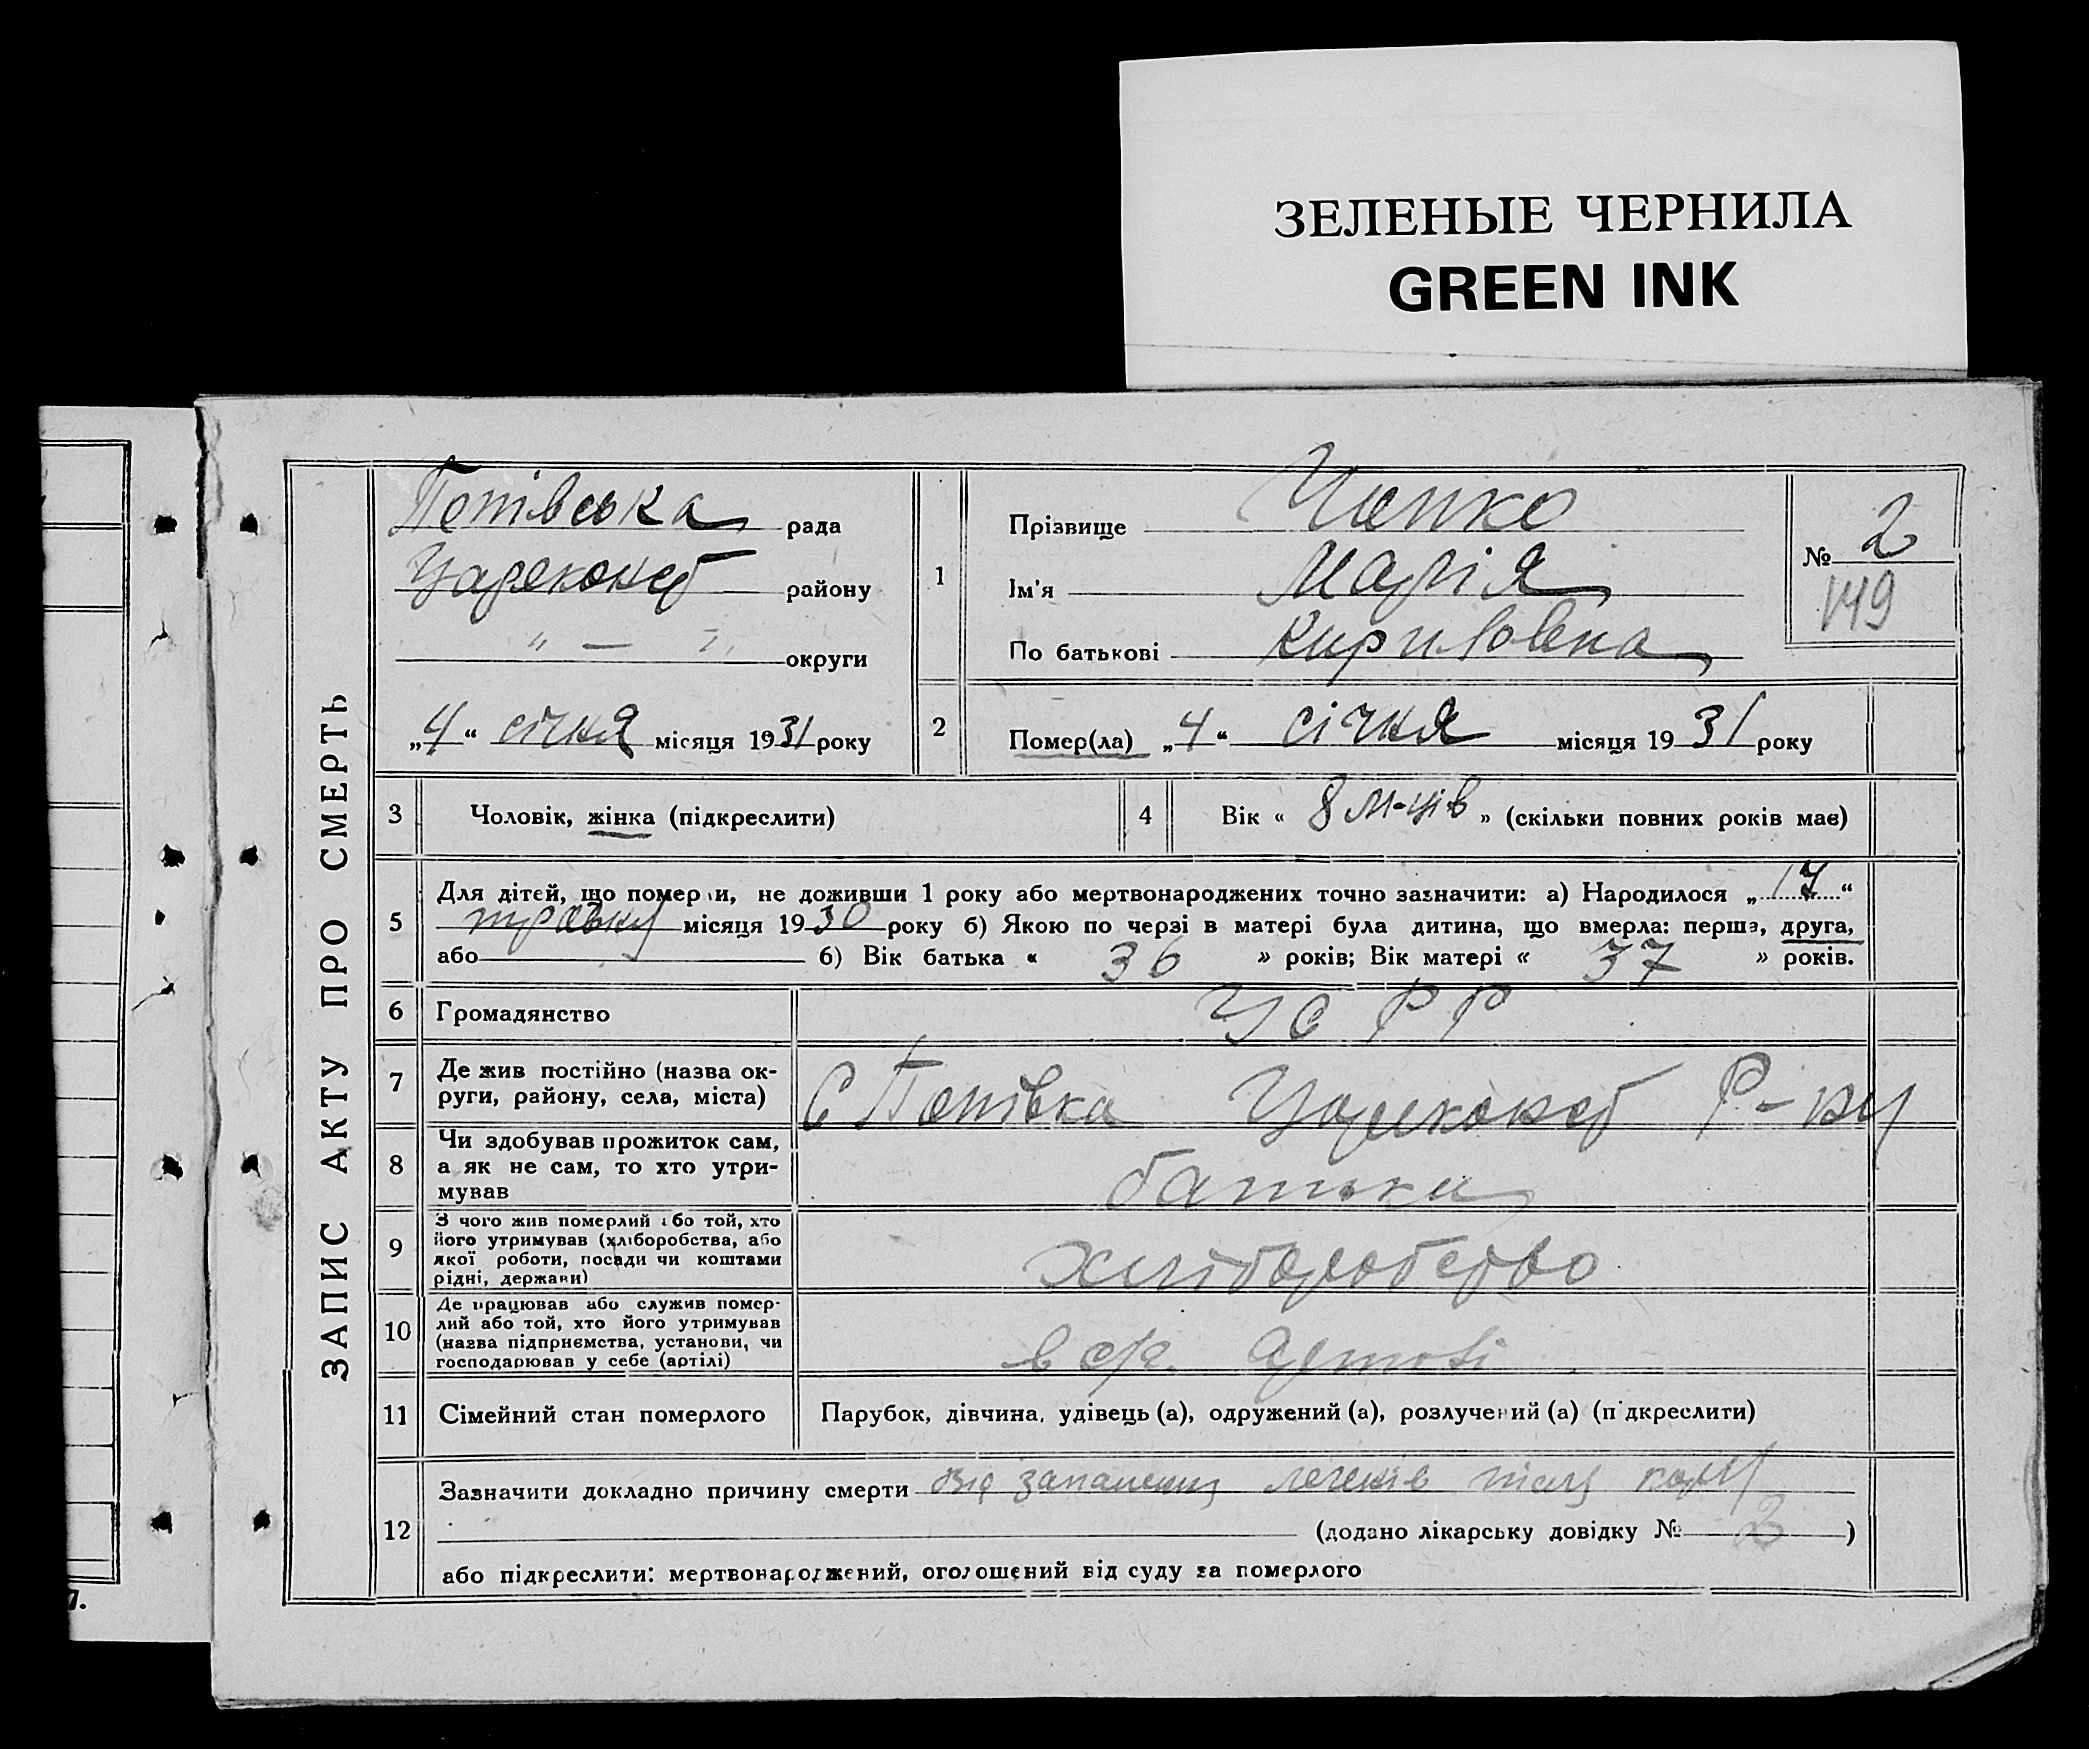 ЗЕЛЕНЫЕ ЧЕРНИЛА
GREEN INK
ЗАПИС АКТУ ПРО СМЕРТЬ
Попівська рада
району
" — " округи
„4“ січня місяця 1931 року
1
Прізвище Чапко
Ім'я Марія
По батькові Кириловна
№ 2
149
2 Помер(ла) „4“ січня місяця 1931 року
3 Чоловік, жінка (підкреслити)
4 Вік « 8 м-ців » (скільки повних років має)
5 Для дітей, що померли, не доживши 1 року або мертвонароджених точно зазначити: а) Народилося „17“
травня місяця 1930 року б) Якою по черзі в матері була дитина, що вмерла: перша, друга,
або 6) Вік батька « 36 » років; Вік матері « 37 » років.
6 Громадянство УСРР
7 Де жив постійно (назва ок-
руги, району, села, міста) С Попівка Р-ну
8 Чи здобував прожиток сам,
а як не сам, то хто утри-
мував батьки
9 З чого жив померлий або той, хто
його утримував (хліборобства, або
якої роботи, посади чи коштами
рідні, держави) хліборобство
10 Де працював або служив помер-
лий або той, хто його утримував
(назва підприємства, установи, чи
господарював у себе (артілі) в с/г. артілі
11 Сімейний стан померлого Парубок, дівчина, удівець (а), одружений (а), розлучений (а) (підкреслити)
12 Зазначити докладно причину смерти Від запалення легенів після кору
(додано лікарську довідку № 2 )
або підкреслити: мертвонароджений, оголошений від суду за померлого